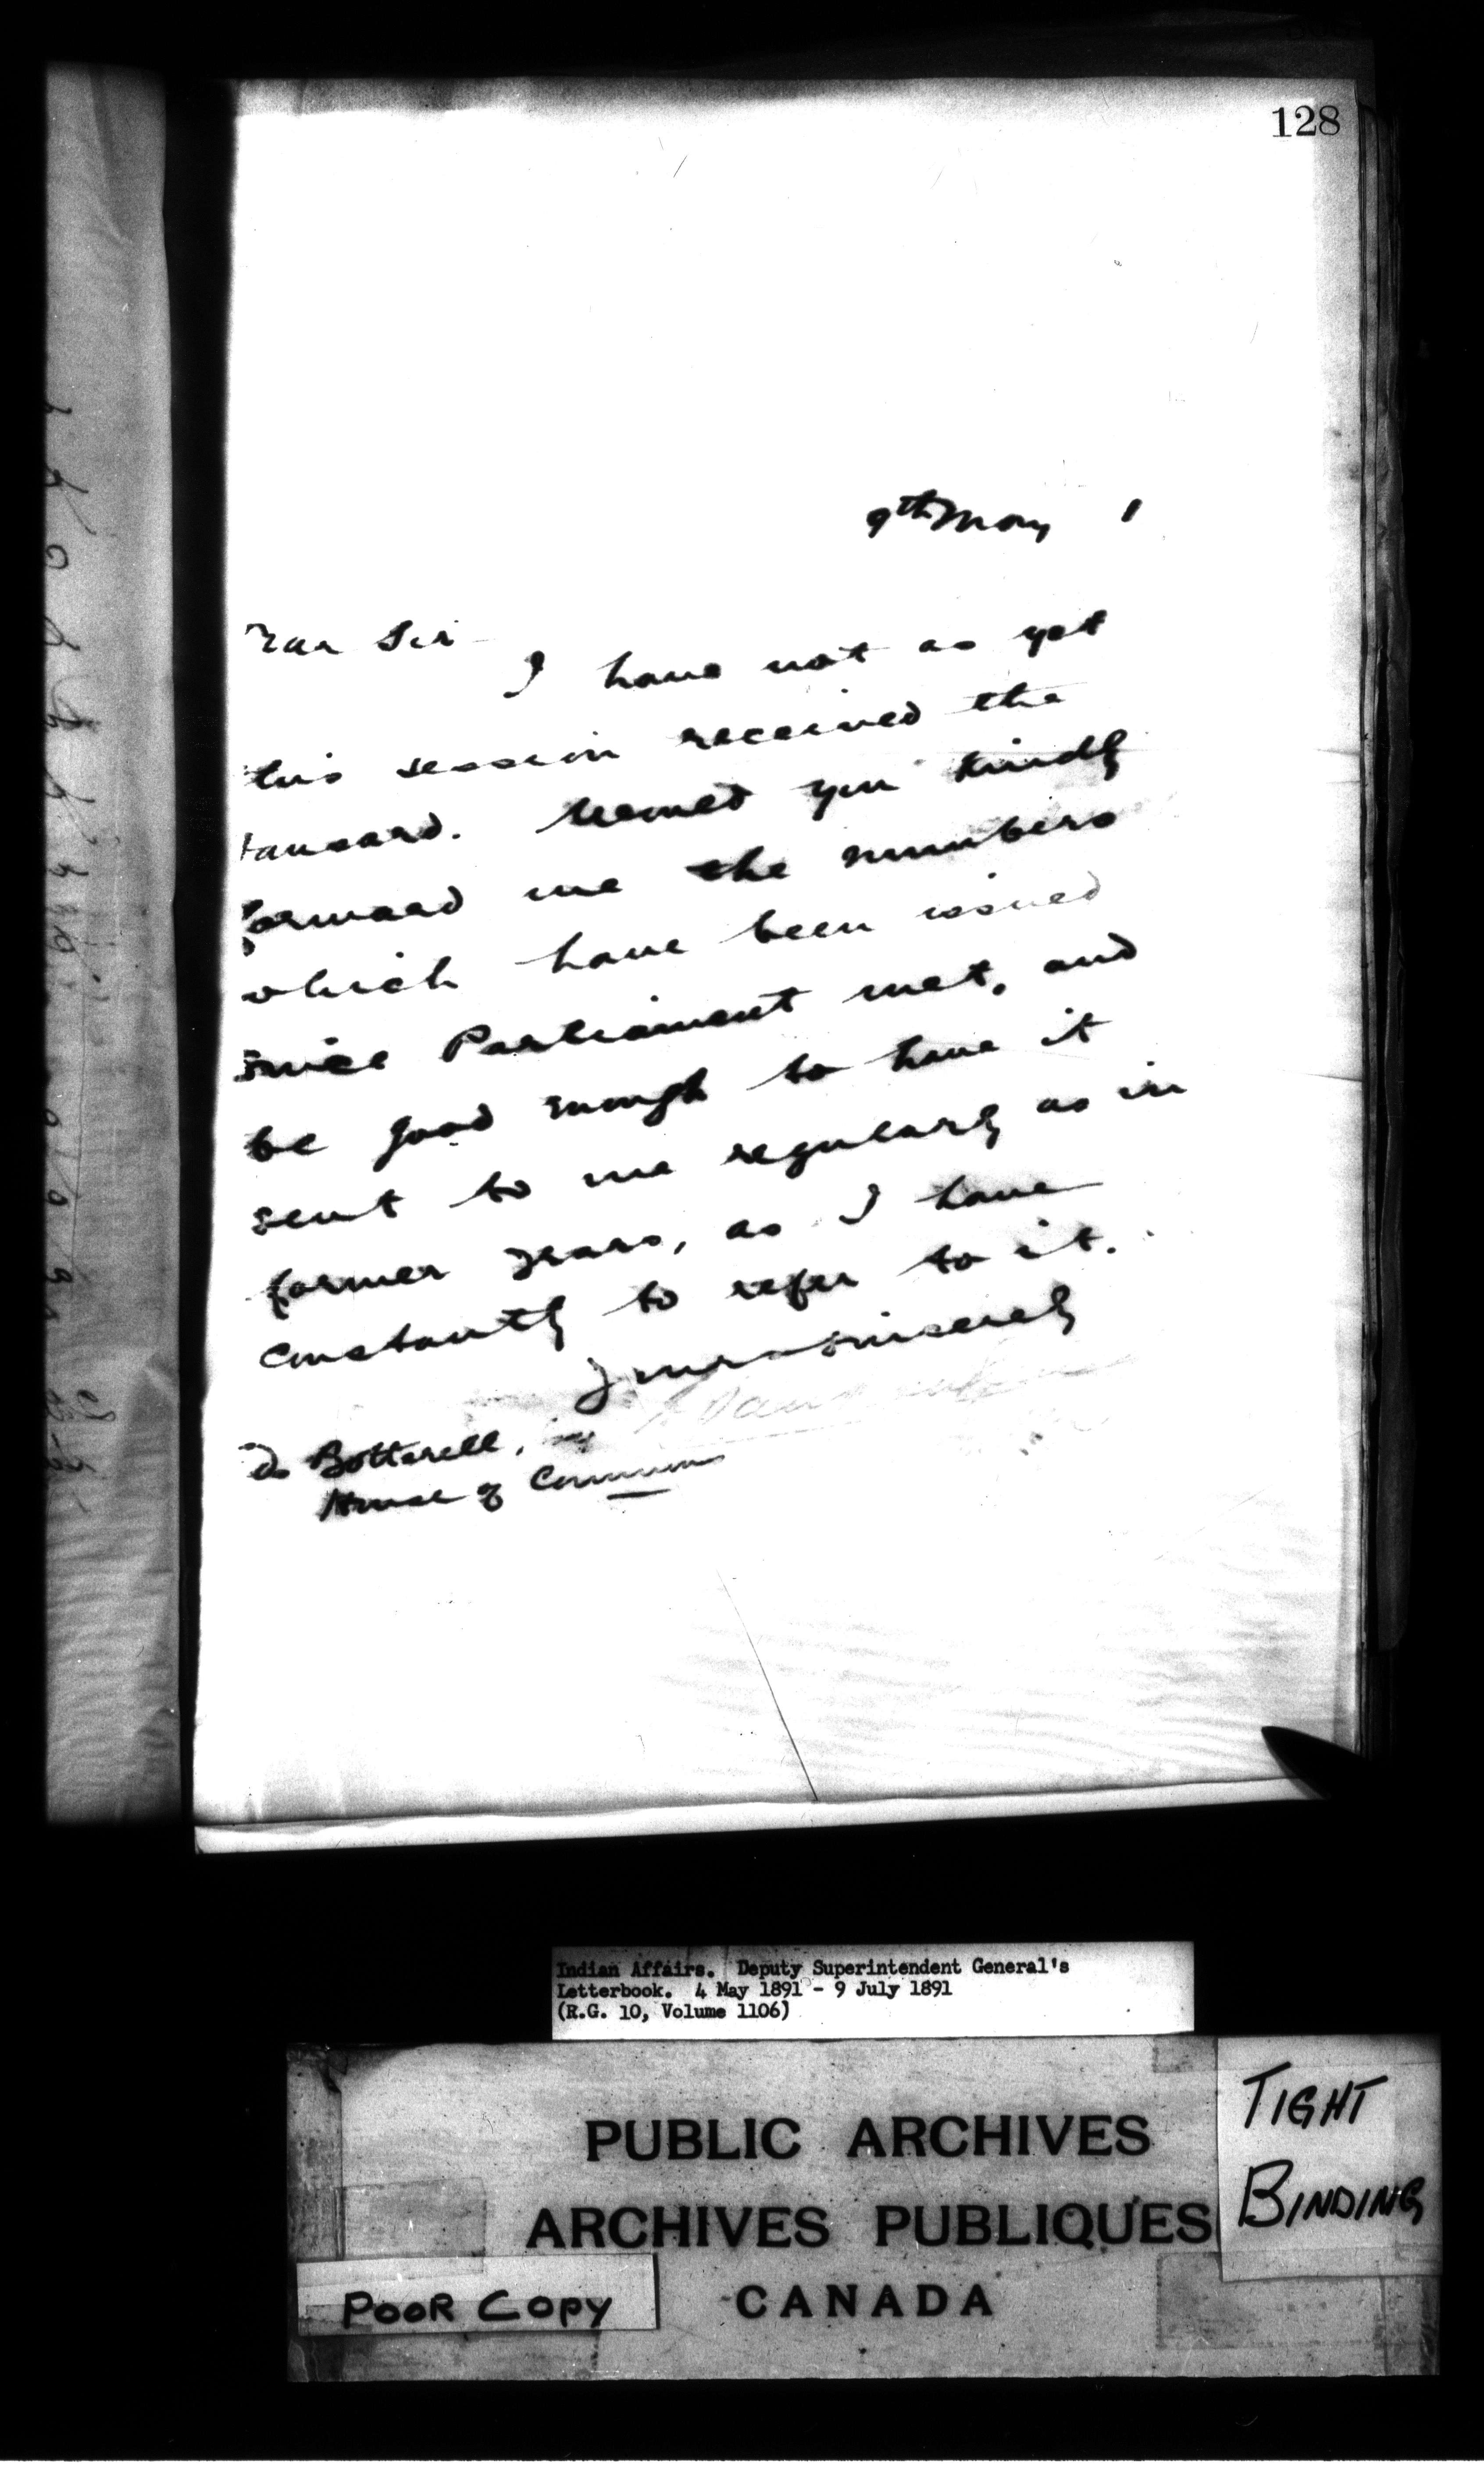 128
9th May 1
Dear Sir
I have not as yet
this session received the
Hansard. Would you kindly
forward me the numbers
which have been issued
since Parliament met, and
be good enough to have it
sent to me regularly as in
former years, as I have
constantly to refer to it.
Yours sincerely
Botterell,
House of Commons
Indian Affairs. Deputy Superintendent General's
Letterbook. 4 May 1891 - 9 July 1891
(R.G. 10, Volume 1106)
PUBLIC ARCHIVES
ARCHIVES PUBLIQUES
CANADA
TIGHT
BINDING
POOR COPY